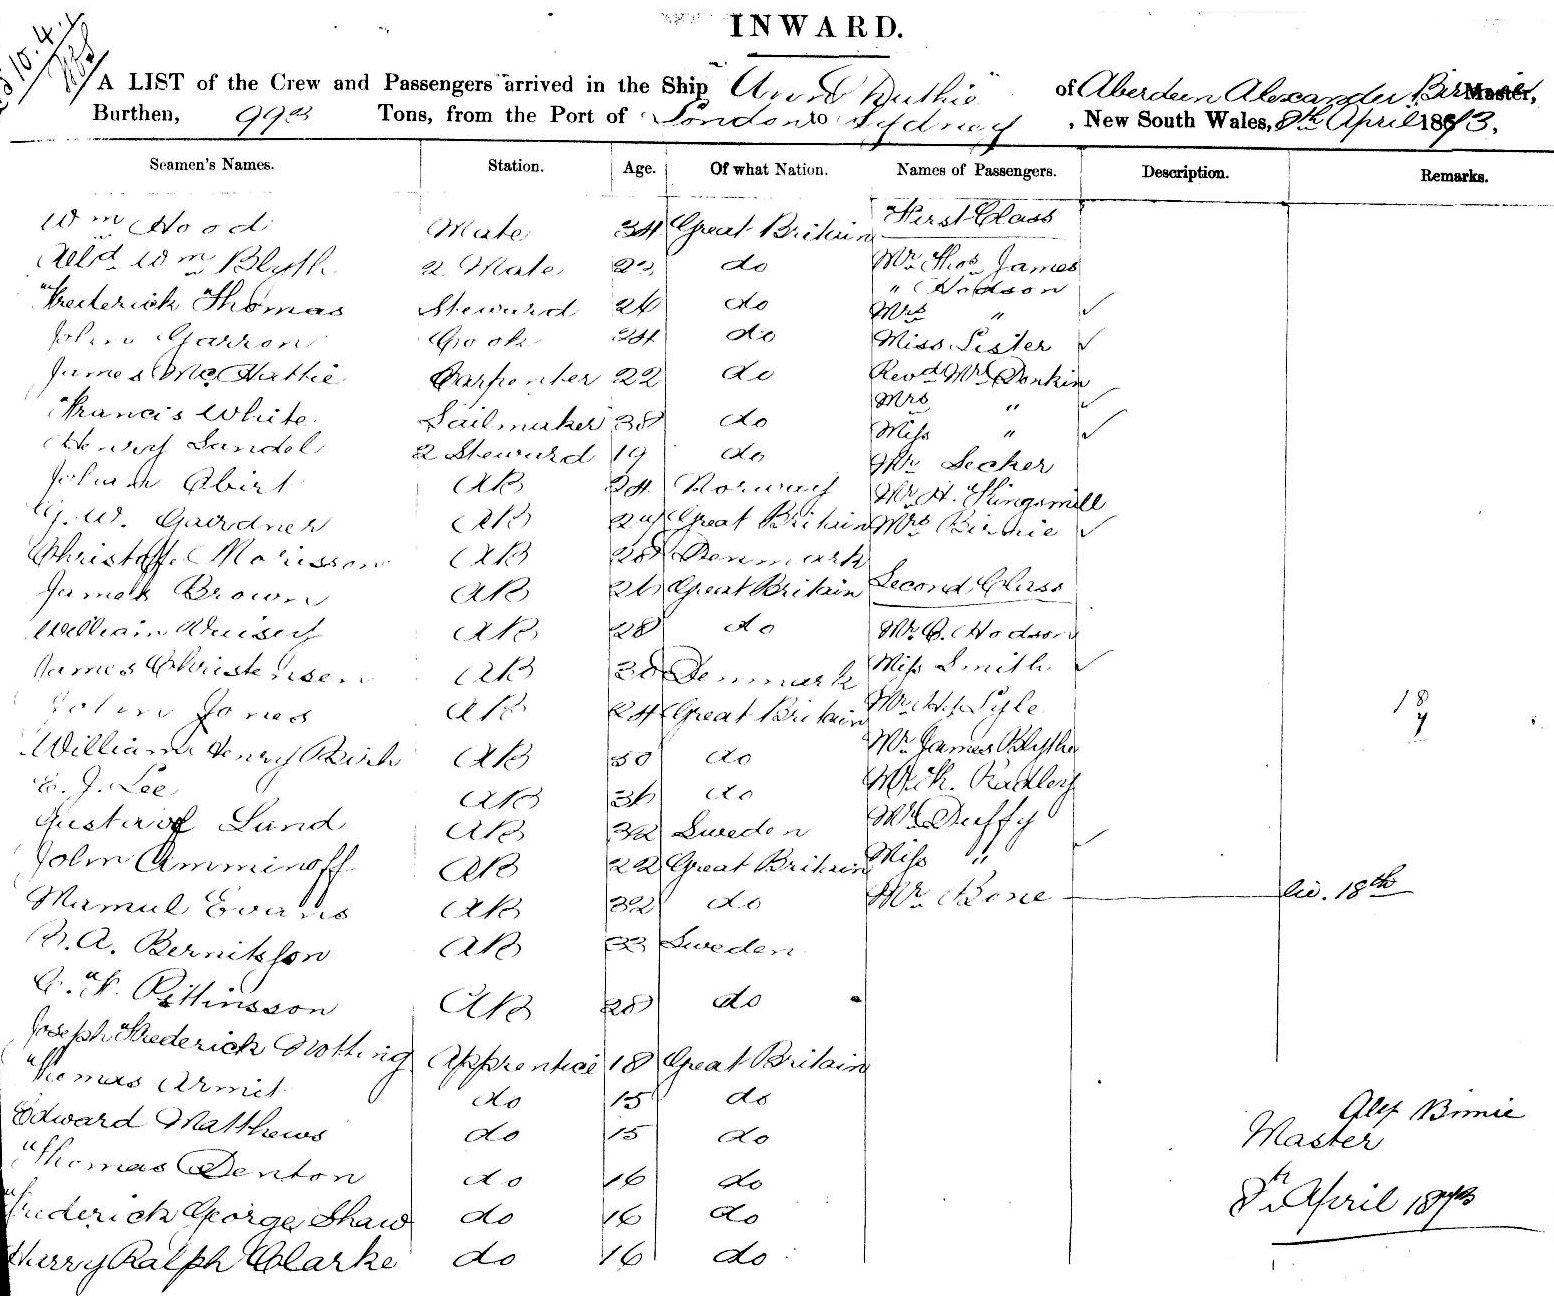 INWARD.
10.4.
A LIST of the Crew and Passengers arrived in the Ship Ann Duthie of Aberdeen Alexander Birnie Master,
Burthen, 993 Tons, from the Port of London to Sydney, New South Wales, 8th April 1873.
Seamen's Names. Station. Age. Of what Nation. Names of Passengers. Description. Remarks.
Wm Hood Mate 34 Great Britain First Class
Alld Wm Blyth 2 Mate 22 do Mr Thos James
Hodson
Frederick Thomas Steward 26 do Mrs " ✓
John Garron Cook 24 do Miss Lister ✓
James McHattie Carpenter 22 do Revd Mr Donkin
Mrs " ✓
Francis White Sailmaker 38 do Miss " ✓
Henry Sandel 2 Steward 19 do Mr Secker
Johan Abirt AB 24 Norway Mr H. Kingsmill
G. W. Gardner AB 24 Great Britain Mrs Birnie ✓
Christoffe Morisson AB 28 Denmark
James Brown AB 26 Great Britain Second Class
William AB 28 do Mr C. Hodson
James Christensen AB 30 Denmark Miss Smith ✓
John Jones AB 24 Great Britain Mr Hy Lyle
18
7
William Henry Birk AB 50 do Mr James Blythe
E. J. Lee AB 36 do Mr R. Radley
Gustavof Lund AB 32 Sweden Mr Duffy
John Amminoff AB 22 Great Britain Miss " ✓
Mamul Evans AB 32 do Mr Bone lic. 18th
B. A. Bernitsson AB 33 Sweden
C. F. Pittinsson AB 28 do
Joseph Frederick Notting Apprentice 18 Great Britain
Thomas Armit do 15 do
Edward Matthews do 15 do
Thomas Denton do 16 do
Frederick George Shaw do 16 do
Harry Ralph Clarke do 16 do
Alex Birnie
Master
8th April 1873